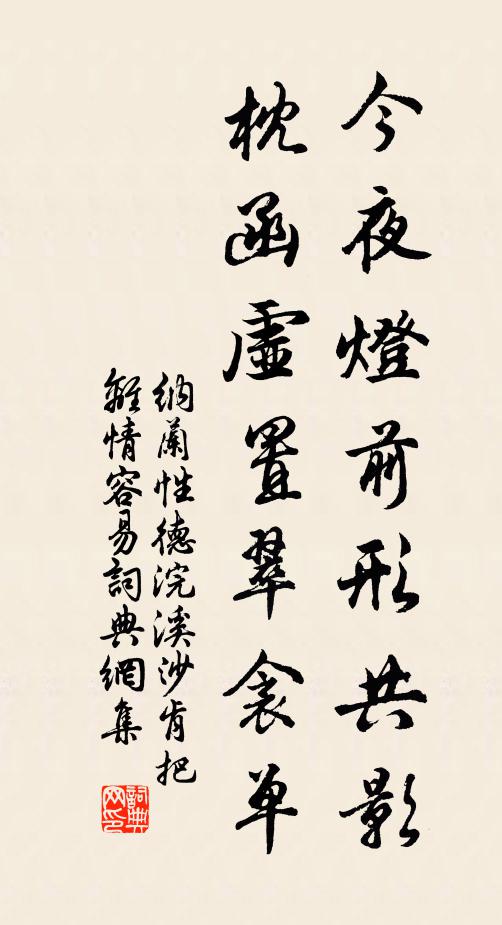 今夜燈前形共影
枕函虛置翠衾單
納蘭性德浣溪沙肯把
離情容易詞典網集
詞典
网印